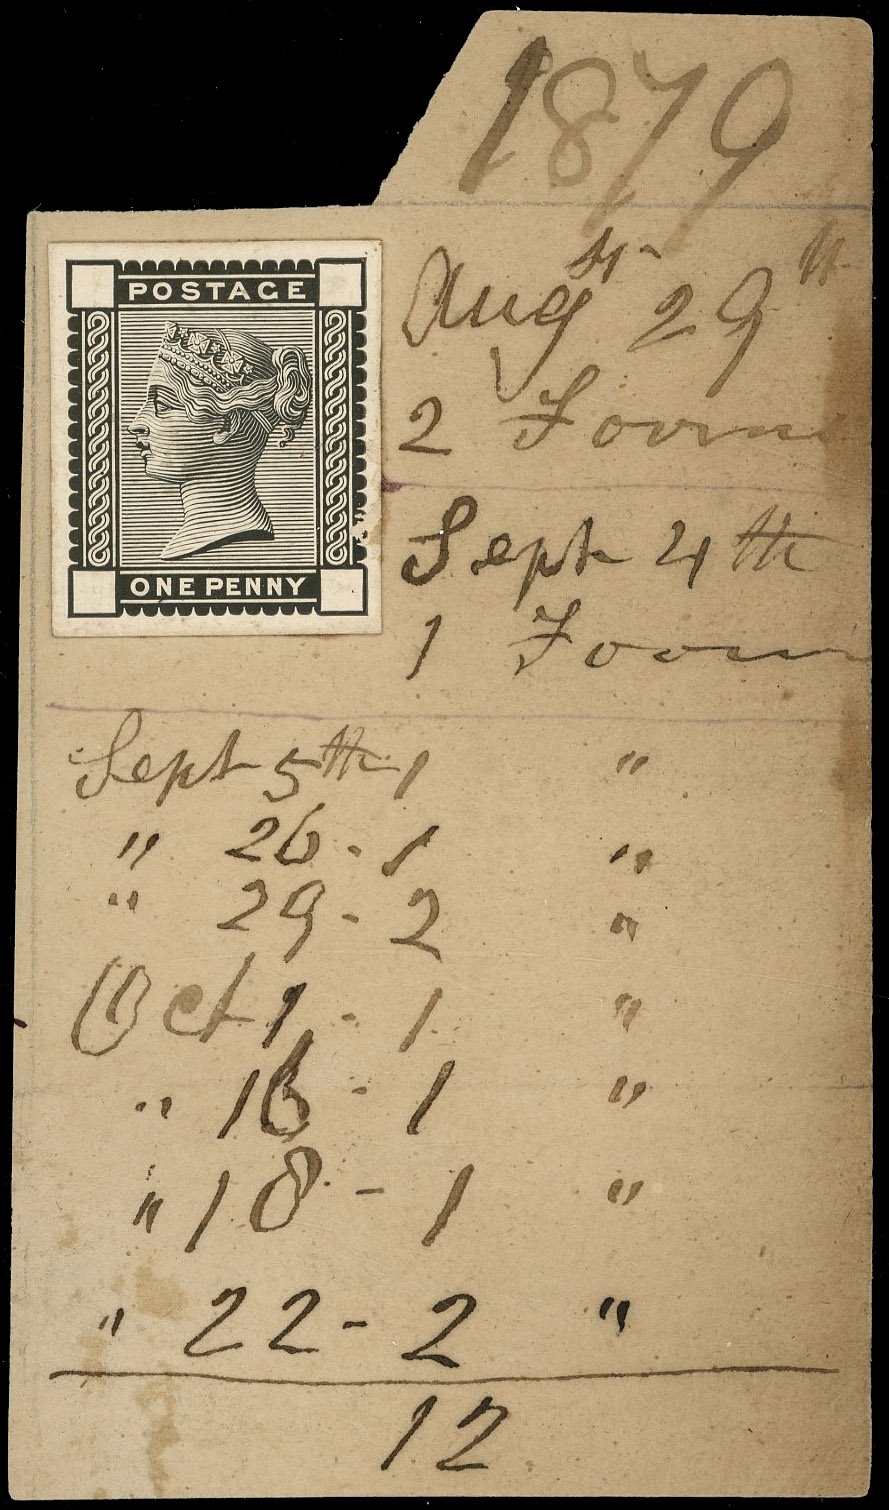 1879
POSTAGE
ONE PENNY
Augst 29th
2 Forms
Sept 4th
1 Form
Sept 5th 1 "
" 26 - 1 "
" 29 - 2 "
Oct 1 - 1 "
" 16 - 1 "
" 18 - 1 "
" 22 - 2 "
12